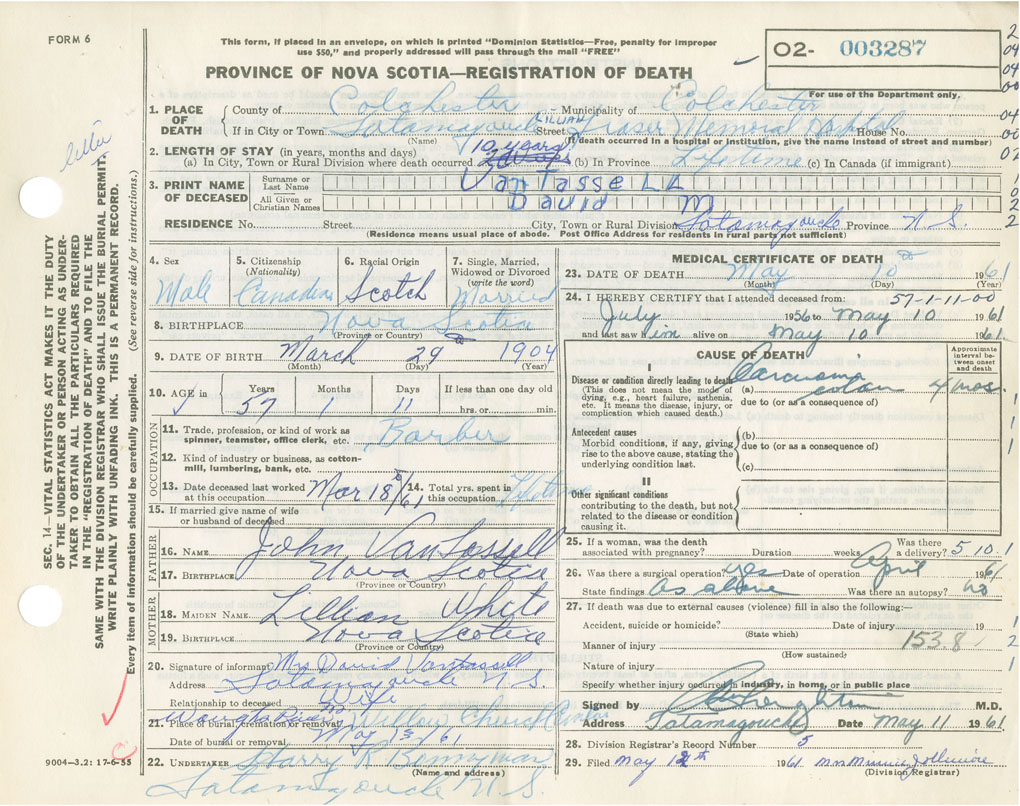 FORM 6
This form, if placed in an envelope, on which is printed "Dominion Statistics—Free, penalty for improper
use $50," and properly addressed will pass through the mail "FREE"
O2- 003287
For use of the Department only.
PROVINCE OF NOVA SCOTIA—REGISTRATION OF DEATH
1. PLACE OF DEATH County of Colchester Municipality of Colchester
If in City or Town Tatamagouche Street LILLIAN Fraser Memorial Hospital House No.
(Name) (If death occurred in a hospital or institution, give the name instead of street and number)
2. LENGTH OF STAY (in years, months and days) 10 years
(a) In City, Town or Rural Division where death occurred (b) In Province Lifetime (c) In Canada (if immigrant)
3. PRINT NAME OF DECEASED Surname or Last Name VanTassell
All Given or Christian Names David M
RESIDENCE No. Street City, Town or Rural Division Tatamagouche Province N.S.
(Residence means usual place of abode. Post Office Address for residents in rural parts not sufficient)
4. Sex Male
5. Citizenship (Nationality) Canadian
6. Racial Origin Scotch
7. Single, Married, Widowed or Divorced (write the word) Married
8. BIRTHPLACE Nova Scotia
(Province or Country)
9. DATE OF BIRTH March 29 1904
(Month) (Day) (Year)
10. AGE in Years 57 Months 1 Days 11 If less than one day old hrs. or min.
OCCUPATION
11. Trade, profession, or kind of work as spinner, teamster, office clerk, etc. Barber
12. Kind of industry or business, as cotton-mill, lumbering, bank, etc.
13. Date deceased last worked at this occupation Mar 18/61
14. Total yrs. spent in this occupation
15. If married give name of wife or husband of deceased
FATHER
16. NAME John VanTassell
17. BIRTHPLACE Nova Scotia
(Province or Country)
MOTHER
18. MAIDEN NAME Lillian White
19. BIRTHPLACE Nova Scotia
(Province or Country)
20. Signature of informant Mrs David Vantassell
Address Tatamagouche N.S.
Relationship to deceased Wife
21. Place of burial, cremation or removal
Date of burial or removal May 13/61
22. UNDERTAKER Harry R
(Name and address)
Tatamagouche N.S.
MEDICAL CERTIFICATE OF DEATH
23. DATE OF DEATH May 10 1961
(Month) (Day) (Year)
24. I HEREBY CERTIFY that I attended deceased from: 57-1-11-00
July 1956 to May 10 1961
and last saw him alive on May 10 1961
CAUSE OF DEATH
Approximate interval between onset and death
I
Disease or condition directly leading to death
(This does not mean the mode of dying, e.g., heart failure, asthenia, etc. It means the disease, injury, or complication which caused death.)
(a) Carcinoma colon 4 mos.
due to (or as a consequence of)
Antecedent causes
Morbid conditions, if any, giving rise to the above cause, stating the underlying condition last.
(b)
due to (or as a consequence of)
(c)
II
Other significant conditions
contributing to the death, but not related to the disease or condition causing it.
25. If a woman, was the death associated with pregnancy? Duration weeks Was there a delivery? 5 10 1
26. Was there a surgical operation? yes Date of operation April 1961
State findings As above Was there an autopsy? no
27. If death was due to external causes (violence) fill in also the following:—
Accident, suicide or homicide? Date of injury 19
(State which)
Manner of injury 153.8
(How sustained)
Nature of injury
Specify whether injury occurred in industry, in home, or in public place
Signed by M.D.
Address Tatamagouche Date May 11 1961
28. Division Registrar's Record Number 5
29. Filed May 12th 1961
(Division Registrar)
SEC. 14—VITAL STATISTICS ACT MAKES IT THE DUTY
OF THE UNDERTAKER OR PERSON ACTING AS UNDER-
TAKER TO OBTAIN ALL THE PARTICULARS REQUIRED
IN THE "REGISTRATION OF DEATH" AND TO FILE THE
SAME WITH THE DIVISION REGISTRAR WHO SHALL ISSUE THE BURIAL PERMIT.
WRITE PLAINLY WITH UNFADING INK. THIS IS A PERMANENT RECORD.
Every item of information should be carefully supplied. (See reverse side for instructions.)
9004—3.2: 17-6-55